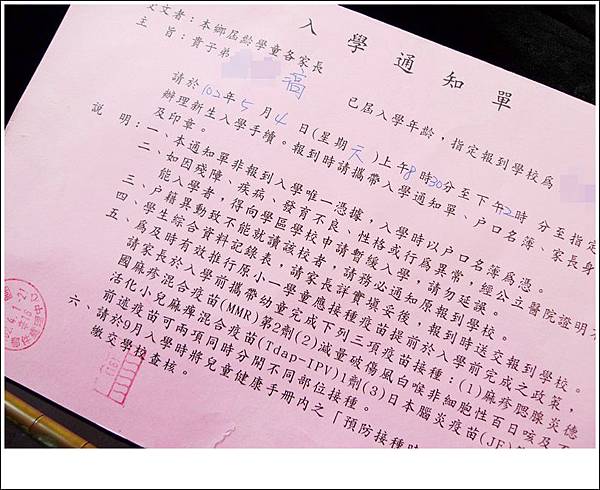 入學通知單
受文者：本鄉屆齡學童各家長
主旨：貴子弟 已屆入學年齡，指定報到學校為
請於102年5月4日(星期天)上午8時30分至下午2時 分至指定
辦理新生入學手續。報到時請攜帶入學通知單、戶口名簿、家長身
及印章。
說明：一、本通知單非報到入學唯一憑據，入學時以戶口名簿為憑。
二、如因殘障、疾病、發育不良、性格或行為異常，經公立醫院證明不
能入學者，得向學區學校申請暫緩入學，請勿延誤。
三、戶籍異動致不能就讀該校者，請務必通知原報到學校。
四、學生綜合資料記錄表，請家長詳實填妥後，報到時送交報到學校。
五、為及時有效推行原小一學童應接種疫苗提前於入學前完成之政策，
請家長於入學前攜帶幼童完成下列三項疫苗接種：(1)麻疹腮腺炎德
國麻疹混合疫苗(MMR)第2劑(2)減量破傷風白喉非細胞性百日咳及不
活化小兒麻痺混合疫苗(Tdap-IPV)1劑(3)日本腦炎疫苗(JE)
前述疫苗可兩項同時分開不同部位接種。
六、請於9月入學時將兒童健康手冊內之「預防接種時
繳交學校查核。